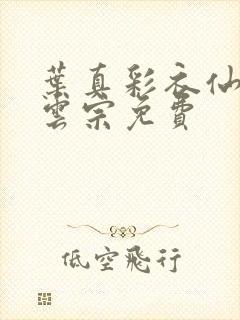 葉真彩衣仙
雲宗免費
低空飛行